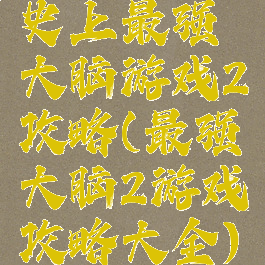 史上最强
大脑游戏2
攻略(最强
大脑2游戏
攻略大全)